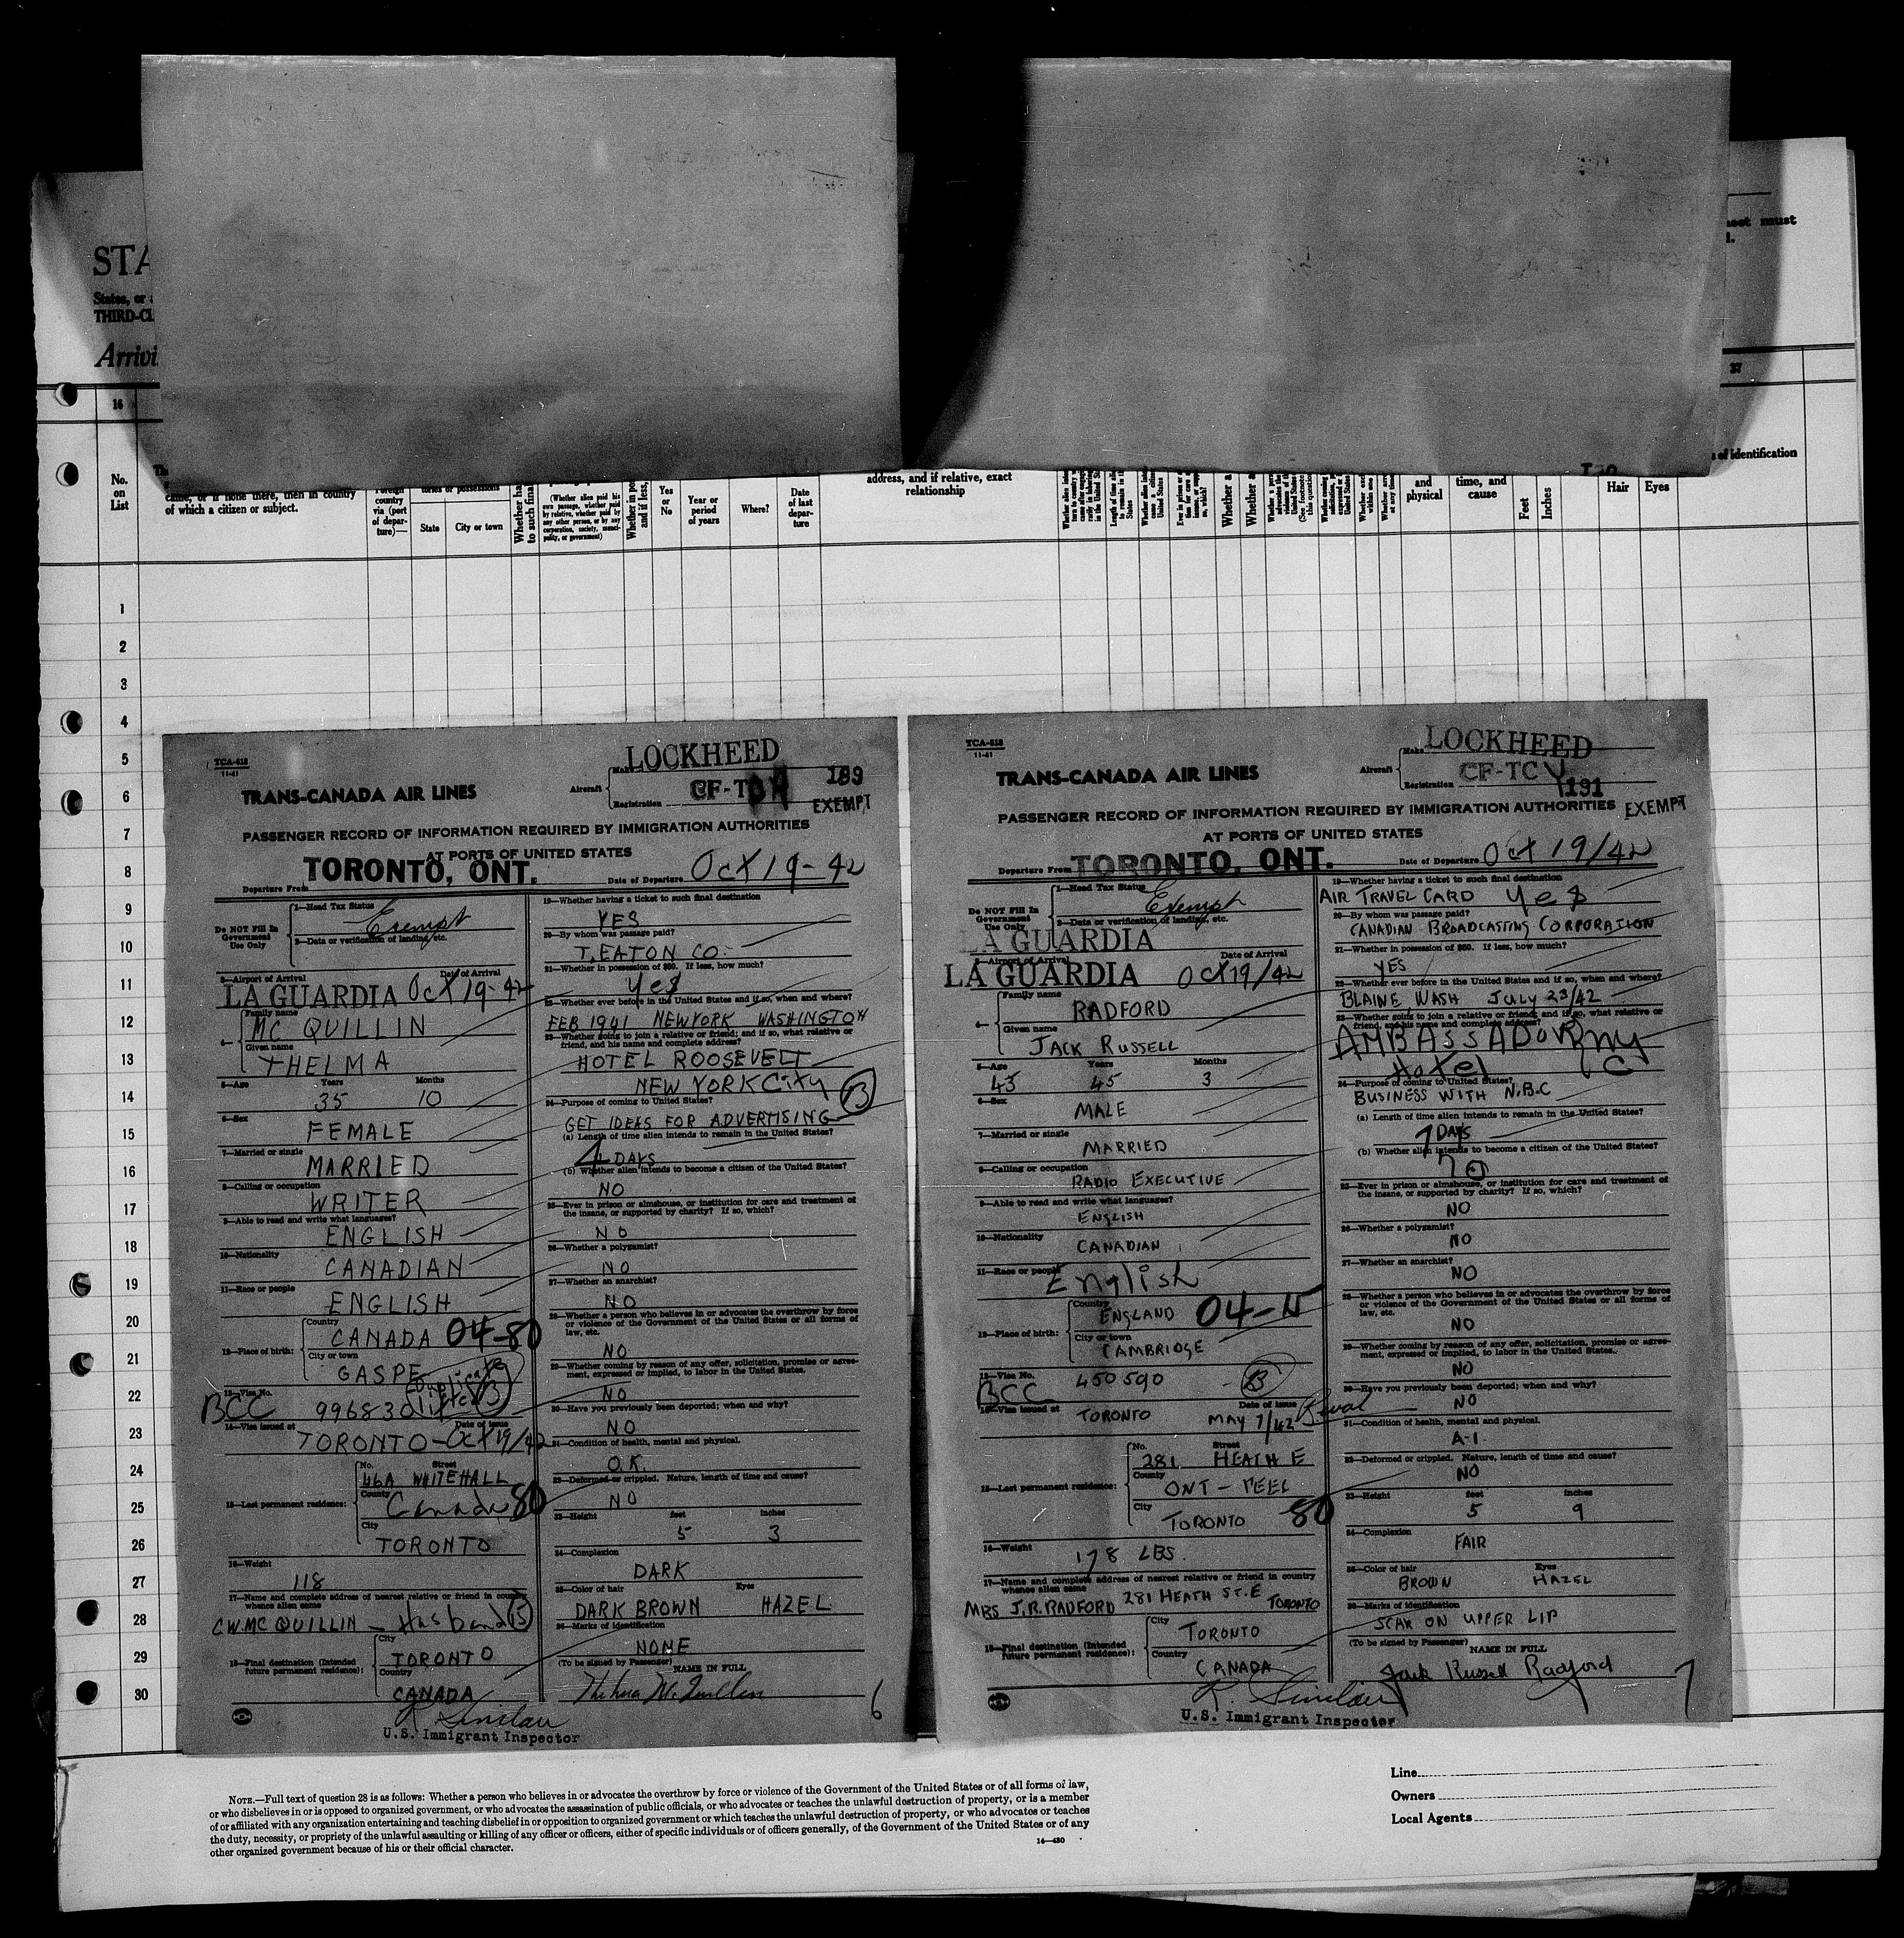 STA
States, or
THIRD-CL
Arrivi
must
37
16
No.
on
List
came, or if none there, then in country
of which a citizen or subject.
Foreign
country
via (port
of depar-
ture)—
State
City or town
(Whether alien paid his
own passage, whether paid
by relative, whether paid by
any other person, or by any
corporation, society, munici-
pality, or government)
Yes
or
No
Year or
period
of years
Where?
Date
of last
depar-
ture
address, and if relative, exact
relationship
and
physical
time, and
cause
Feet
Inches
of identification
Hair
Eyes
1
2
3
4
5
6
7
8
9
10
11
12
13
14
15
16
17
18
19
20
21
22
23
24
25
26
27
28
29
30
TCA-518
11-41
TRANS-CANADA AIR LINES
Aircraft
Make LOCKHEED
Registration CF-TC
189
EXEMPT
PASSENGER RECORD OF INFORMATION REQUIRED BY IMMIGRATION AUTHORITIES
AT PORTS OF UNITED STATES
Departure From TORONTO, ONT. Date of Departure Oct 19-42
Do NOT Fill In
Government
Use Only
1—Head Tax Status
Exempt
2—Data or verification of landing, etc.
3—Airport of Arrival Date of Arrival
LA GUARDIA Oct 19-42
4— Family name
MC QUILLIN
Given name
THELMA
5—Age Years Months
35 10
6—Sex
FEMALE
7—Married or single
MARRIED
8—Calling or occupation
WRITER
9—Able to read and write what languages?
ENGLISH
10—Nationality
CANADIAN
11—Race or people
ENGLISH
12—Place of birth: Country
CANADA 04-80
City or town
GASPE
13—Visa No.
BCC 996830
14—Visa issued at Date of issue
TORONTO - Oct 19/42
15—Last permanent residence: No. Street
46A WHITEHALL
County
Canada 80
City
TORONTO
16—Weight
118
17—Name and complete address of nearest relative or friend in country
whence alien came
C.W. MC QUILLIN - Husband 15
18—Final destination (Intended
future permanent residence): City
TORONTO
Country
CANADA
R. Sinclair
U.S. Immigrant Inspector
19—Whether having a ticket to such final destination
YES
20—By whom was passage paid?
T. EATON CO.
21—Whether in possession of $50. If less, how much?
Yes
22—Whether ever before in the United States and if so, when and where?
FEB 1941 NEWYORK WASHINGTON
23—Whether going to join a relative or friend; and if so, what relative or
friend, and his name and complete address?
HOTEL ROOSEVELT
NEW YORK City
B
24—Purpose of coming to United States?
GET IDEAS FOR ADVERTISING
(a) Length of time alien intends to remain in the United States?
4 DAYS
(b) Whether alien intends to become a citizen of the United States?
NO
25—Ever in prison or almshouse, or institution for care and treatment of
the insane, or supported by charity? If so, which?
NO
26—Whether a polygamist?
NO
27—Whether an anarchist?
NO
28—Whether a person who believes in or advocates the overthrow by force
or violence of the Government of the United States or all forms of
law, etc.
NO
29—Whether coming by reason of any offer, solicitation, promise or agree-
ment, expressed or implied, to labor in the United States.
NO
30—Have you previously been deported; when and why?
NO
31—Condition of health, mental and physical.
O.K.
32—Deformed or crippled. Nature, length of time and cause?
NO
33—Height feet inches
5 3
34—Complexion
DARK
35—Color of hair Eyes
DARK BROWN HAZEL
36—Marks of identification
NONE
(To be signed by Passenger) NAME IN FULL
Thelma McQuillin
6
TCA-518
11-41
TRANS-CANADA AIR LINES
Aircraft
Make LOCKHEED
Registration CF-TC
191
EXEMPT
PASSENGER RECORD OF INFORMATION REQUIRED BY IMMIGRATION AUTHORITIES
AT PORTS OF UNITED STATES
Departure From TORONTO, ONT. Date of Departure Oct 19/42
Do NOT Fill In
Government
Use Only
1—Head Tax Status
Exempt
2—Data or verification of landing, etc.
LA GUARDIA
3—Airport of Arrival Date of Arrival
LA GUARDIA Oct 19/42
4— Family name
RADFORD
Given name
JACK RUSSELL
5—Age Years Months
45 45 3
6—Sex
MALE
7—Married or single
MARRIED
8—Calling or occupation
RADIO EXECUTIVE
9—Able to read and write what languages?
ENGLISH
10—Nationality
CANADIAN
11—Race or people
English
12—Place of birth: Country
ENGLAND
City or town
CAMBRIDGE
13—Visa No.
BCC 450590 B
14—Visa issued at Date of issue
TORONTO MAY 7/42
15—Last permanent residence: No. Street
281 HEATH E
County
ONT - PEEL
City
TORONTO 80
16—Weight
178 LBS.
17—Name and complete address of nearest relative or friend in country
whence alien came
MRS J.R. RADFORD 281 HEATH ST. E TORONTO
18—Final destination (Intended
future permanent residence): City
TORONTO
Country
CANADA
R. Sinclair
U.S. Immigrant Inspector
19—Whether having a ticket to such final destination
AIR TRAVEL CARD Yes
20—By whom was passage paid?
CANADIAN BROADCASTING CORPORATION
21—Whether in possession of $50. If less, how much?
YES
22—Whether ever before in the United States and if so, when and where?
BLAINE WASH JULY 23/42
23—Whether going to join a relative or friend; and if so, what relative or
friend, and his name and complete address?
AMBASSADOR NY
Hotel C
24—Purpose of coming to United States?
BUSINESS WITH N.B.C
(a) Length of time alien intends to remain in the United States?
7 DAYS
(b) Whether alien intends to become a citizen of the United States?
no
25—Ever in prison or almshouse, or institution for care and treatment of
the insane, or supported by charity? If so, which?
NO
26—Whether a polygamist?
NO
27—Whether an anarchist?
NO
28—Whether a person who believes in or advocates the overthrow by force
or violence of the Government of the United States or all forms of
law, etc.
NO
29—Whether coming by reason of any offer, solicitation, promise or agree-
ment, expressed or implied, to labor in the United States.
NO
30—Have you previously been deported; when and why?
NO
31—Condition of health, mental and physical.
A-1.
32—Deformed or crippled. Nature, length of time and cause?
NO
33—Height feet inches
5 9
34—Complexion
FAIR
35—Color of hair Eyes
BROWN HAZEL
36—Marks of identification
SCAR ON UPPER LIP
(To be signed by Passenger) NAME IN FULL
Jack Russell Radford
7
NOTE.—Full text of question 28 is as follows: Whether a person who believes in or advocates the overthrow by force or violence of the Government of the United States or of all forms of law,
or who disbelieves in or is opposed to organized government, or who advocates the assassination of public officials, or who advocates or teaches the unlawful destruction of property, or is a member
of or affiliated with any organization entertaining and teaching disbelief in or opposition to organized government or which teaches the unlawful destruction of property, or who advocates or teaches
the duty, necessity, or propriety of the unlawful assaulting or killing of any officer or officers, either of specific individuals or of officers generally, of the Government of the United States or of any
other organized government because of his or their official character.
14—430
Line
Owners
Local Agents